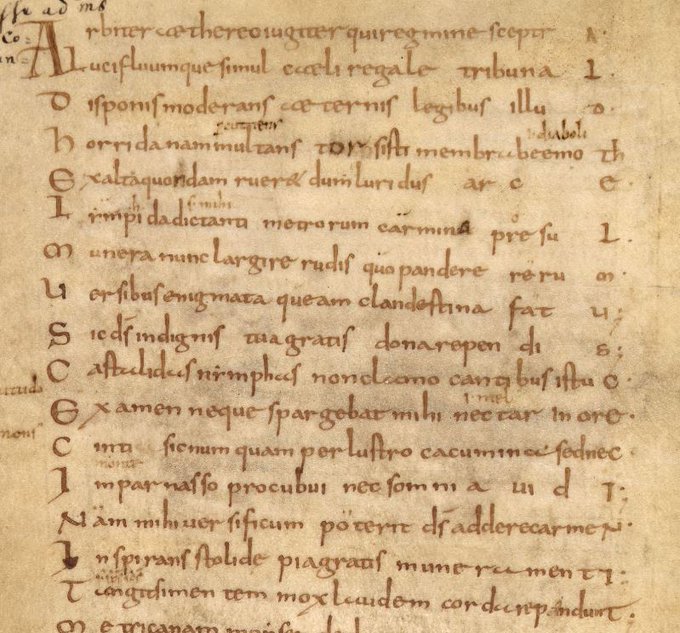 Arbiter aethereo iugiter qui regmine sceptr A
Lucifluumque simul caeli regale tribuna L
Disponis moderans aeternis legibus illu D
i diaboli
Horrida nam multans torsisti membra beemo Th
Exalta quondam rueret dum luridus arc E
s mihi
Limpida dictanti metrorum carmina presu L
Munera nunc largire rudis quo pandere reru m
Uersibus enigmata queam clandestina fat u
Sic ds indignis tua gratis dona rependi s
Castalidas nimphas non clamo cantibus istu C
i mel
Examen neque spargebat mihi nectar in orE
Cinti sic numquam perlustro cacumina sed neC
monte
In parnasso procubui nec somnia uidI
Nam mihi uersificum poterit ds addere carmeN
Inspirans stolide pia gratis munera mentI
Tangit si mentem mox laudem corda rependunT
Metrica nam